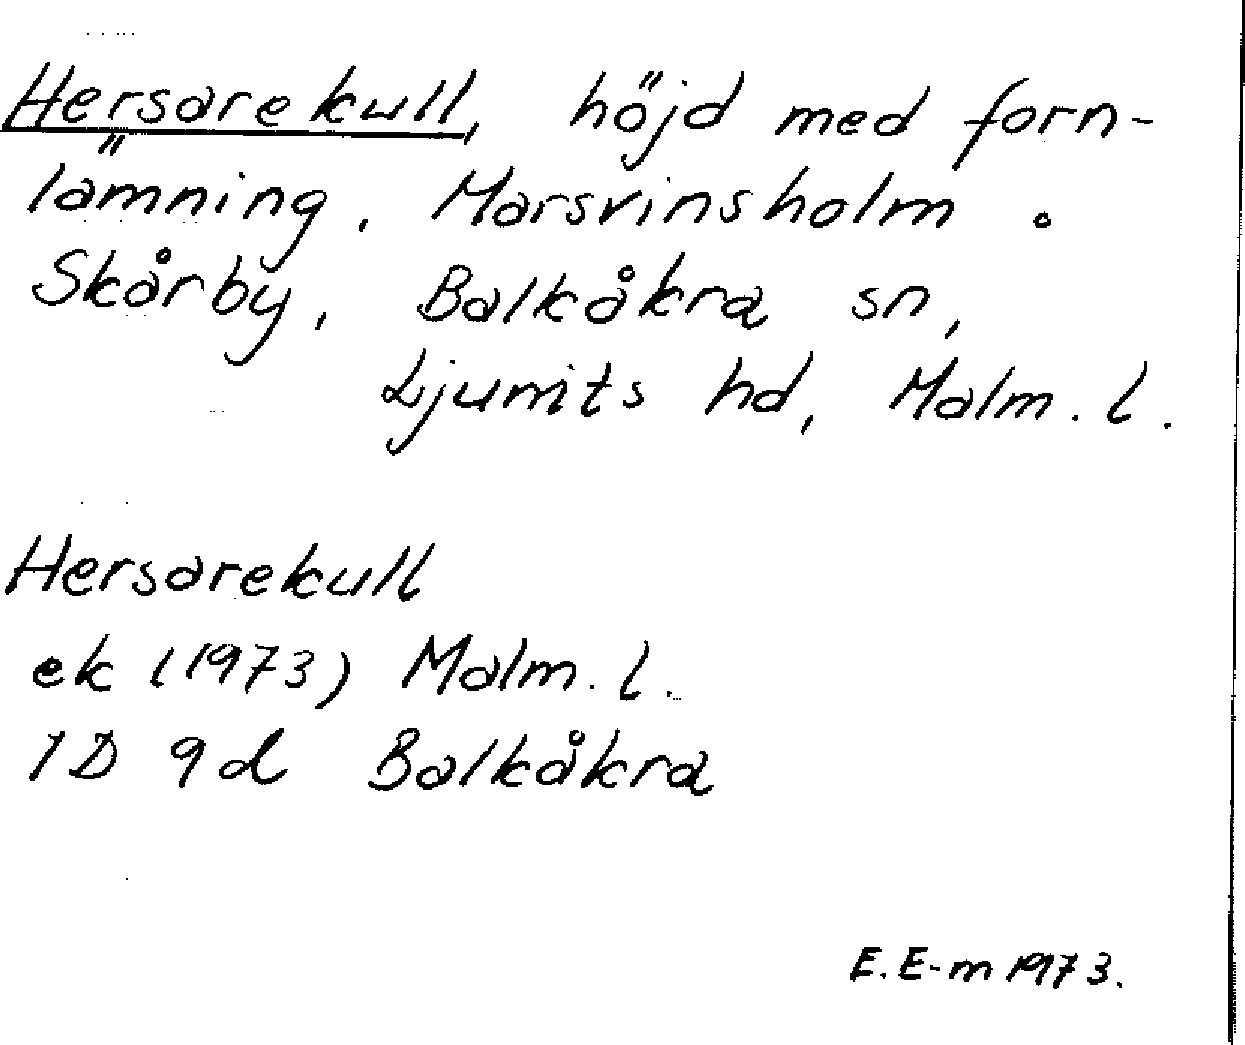 Hersarekull, höjd med forn-
lämning, Marsvinsholm o
Skårby, Balkåkra sn,
Ljunits hd, Malm. l.
Hersarekull
ek (1973) Malm. l.
1D 9d Balkåkra
E. E-m 1973.